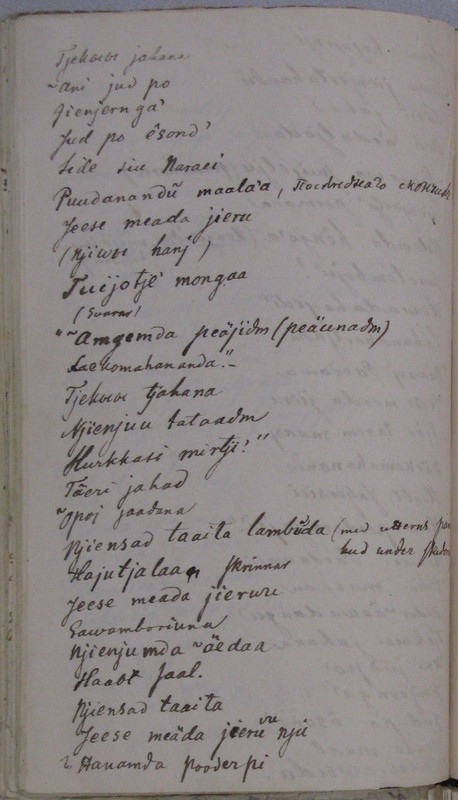 Tjekwe jahana
~ani jud po
Jienjernga'
Jud po êsond'
Side siu Naraei
Puudanandŭ maala'a,
Jeese meada jieru
(Njiwe hanj')
Tuijotje' mongaa
(Svarar)
"~Amgemda peäjidm (peäunadm)
Xaekomahananda."-
Tjekwe tjahana
Njienjuu tataadm
Hurkkasi mirtji!"
Täeri jahad
~Opoj jaadana
Njiensad taaita lambŭda (med utterns
hud under
Hajutjalaan skrinnar
Jeese meada jieruru
Sawamboriuna
Njienjumda ~äedaa
Haabt jaal.
Njiensad taaita
Jeese meäda jieru nju
Hanamda pooderpi